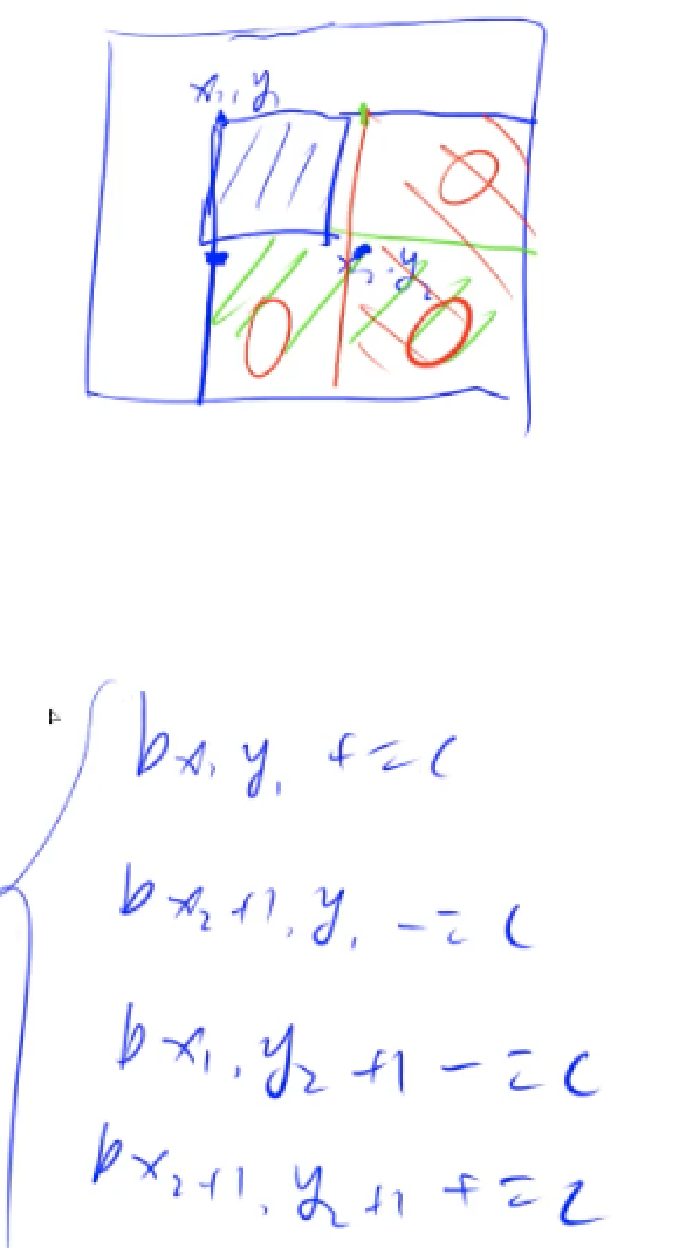 x₁, y₁
x₂, y₂
bx₁ y₁ += c
bx₂+1, y₁ -= c
bx₁, y₂+1 -= c
bx₂+1, y₂+1 += c